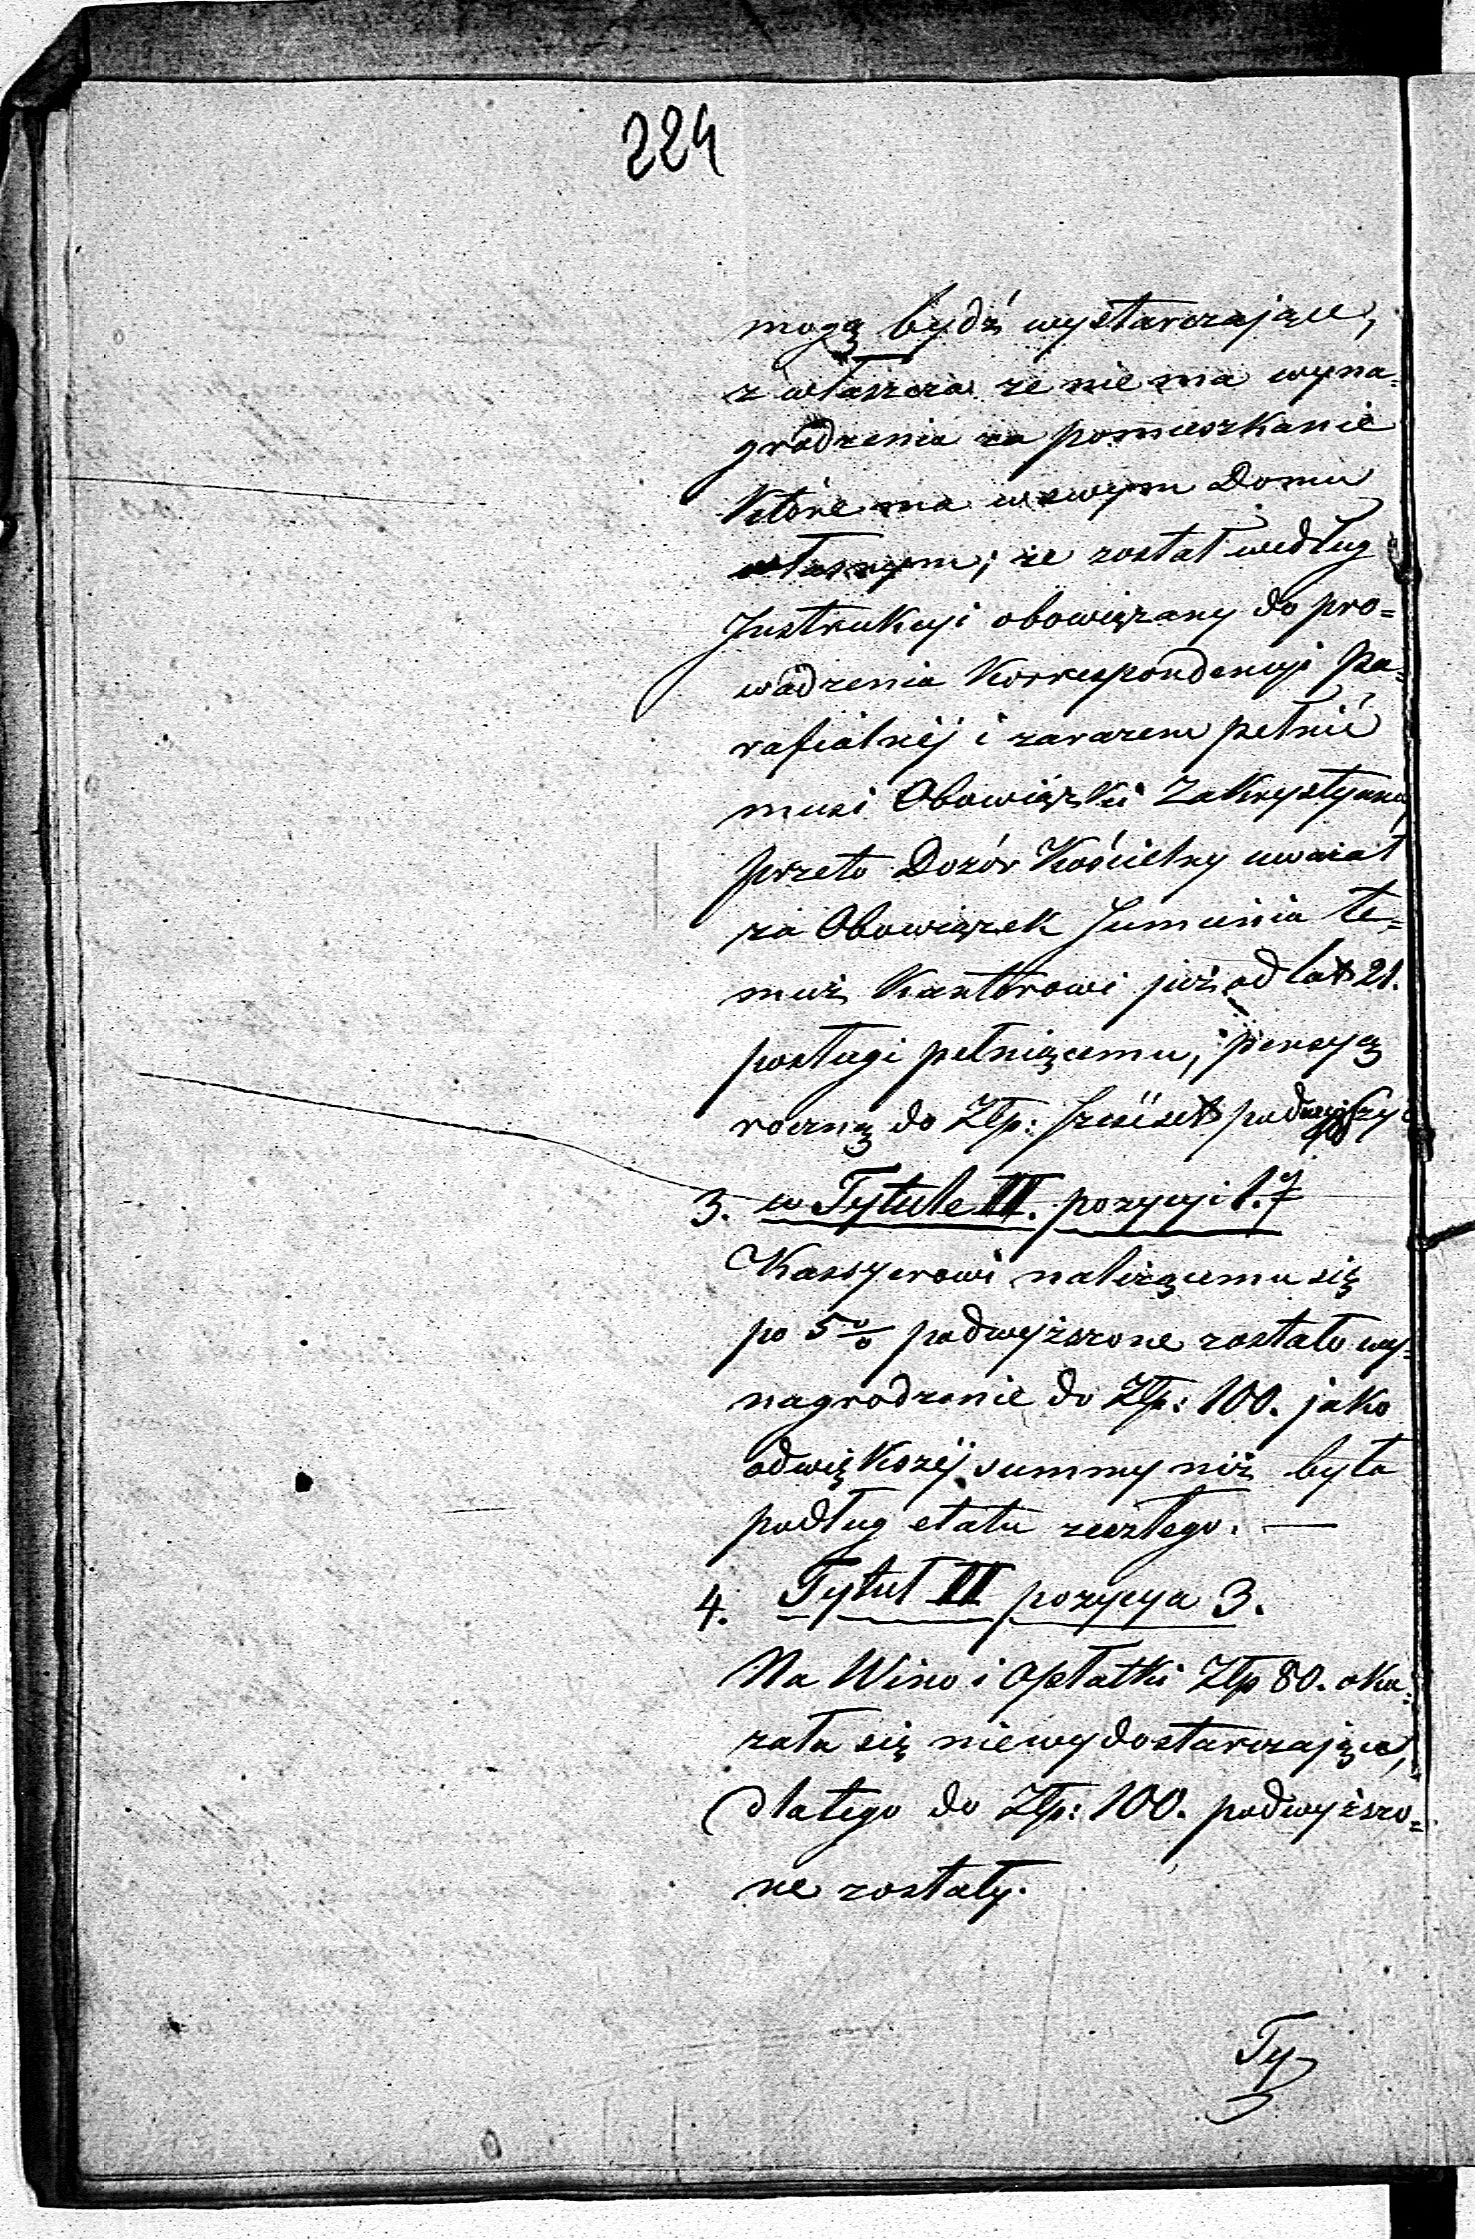 224
mogą bydź wystarczające,
z własczcza że nie ma wyna-
grodzenia za pomieszkanie
które ma w swym Domu
własnym, że został według
Instrukcyi obowiązany do pro=
wadzenia Korrespondencyi Pa=
rafialnéj i zarazem pełnić
musi Obowiązki Zakrystyana
przeto Dozór Kościelny uważał
za Obowiązek Sumienia te=
muż Kantorowi już od lat 21.
posługi pełniącemu, pensyą
roczną do Złp: sześciset podwyższyć
3. w Tytule II. pozycyi 1.
Kassyerowi należącemu się
po 5% podwyższone zostało wy=
nagrodzenie do Złp: 100. jako
od większéj summy niż była
podług etatu zeszłego. —
4. Tytuł II pozycya 3.
Na Wino i Opłatki Złp 80. oka=
zała się niewydostarczające,
dlatego do Złp: 100. podwyższo=
ne zostały.
Ty